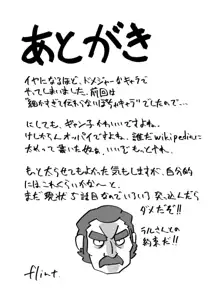 あとがき
イヤになるほど、ドメジャーなキャラで
やってしまいました。前回は
"細かすぎて伝わらないぼっキャラ"でしたので…
にしても、ギャン子かわいいですよね。
けしからんオッパイですよね。誰だwikipediaに
太めって書いた奴ぁ、いいぞもっとやれ。
もっと太らせてもよかった気もしますが、自分的
にはこれくらいかな〜と。
まだ現状5話目なのでいろいろ突っ込んだら
ダメだぞ!!
ラルさんとの
約束だ!!
flint.